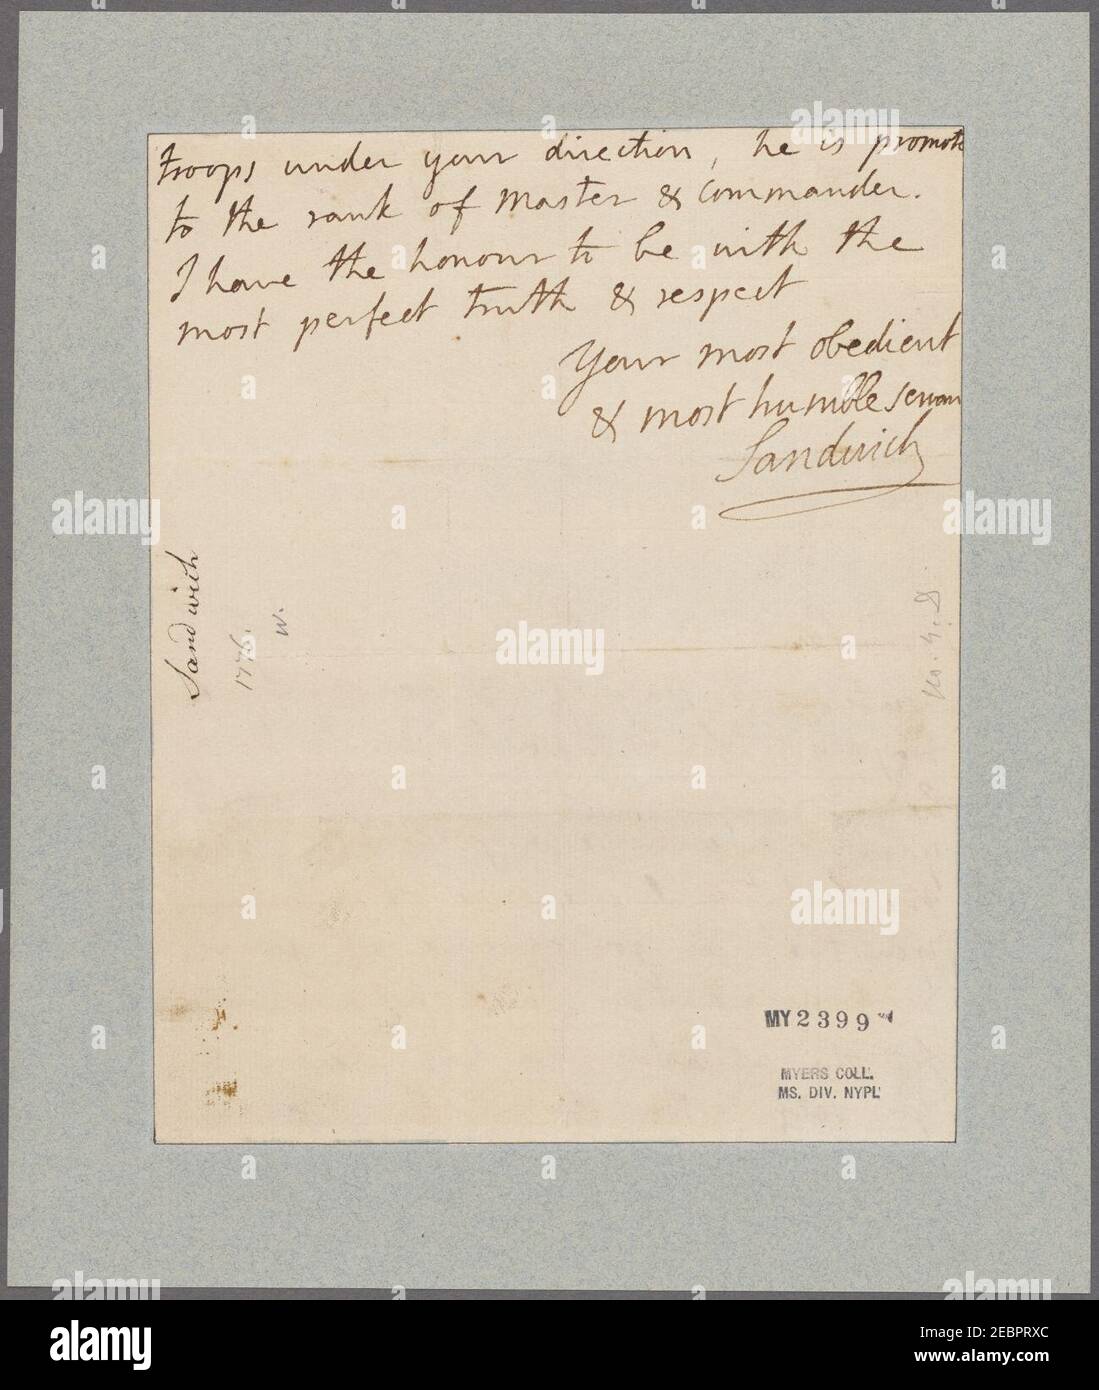 troops under your direction, he is promote
to the rank of Master & Commander.
I have the honour to be with the
most perfect truth & respect
Your most obedient
& most humble servan
Sandwich
Sandwich
1776.
W.
MY 2399
MYERS COLL.
MS. DIV. NYPL
alamy
Image ID: 2EBPRXC
www.alamy.com